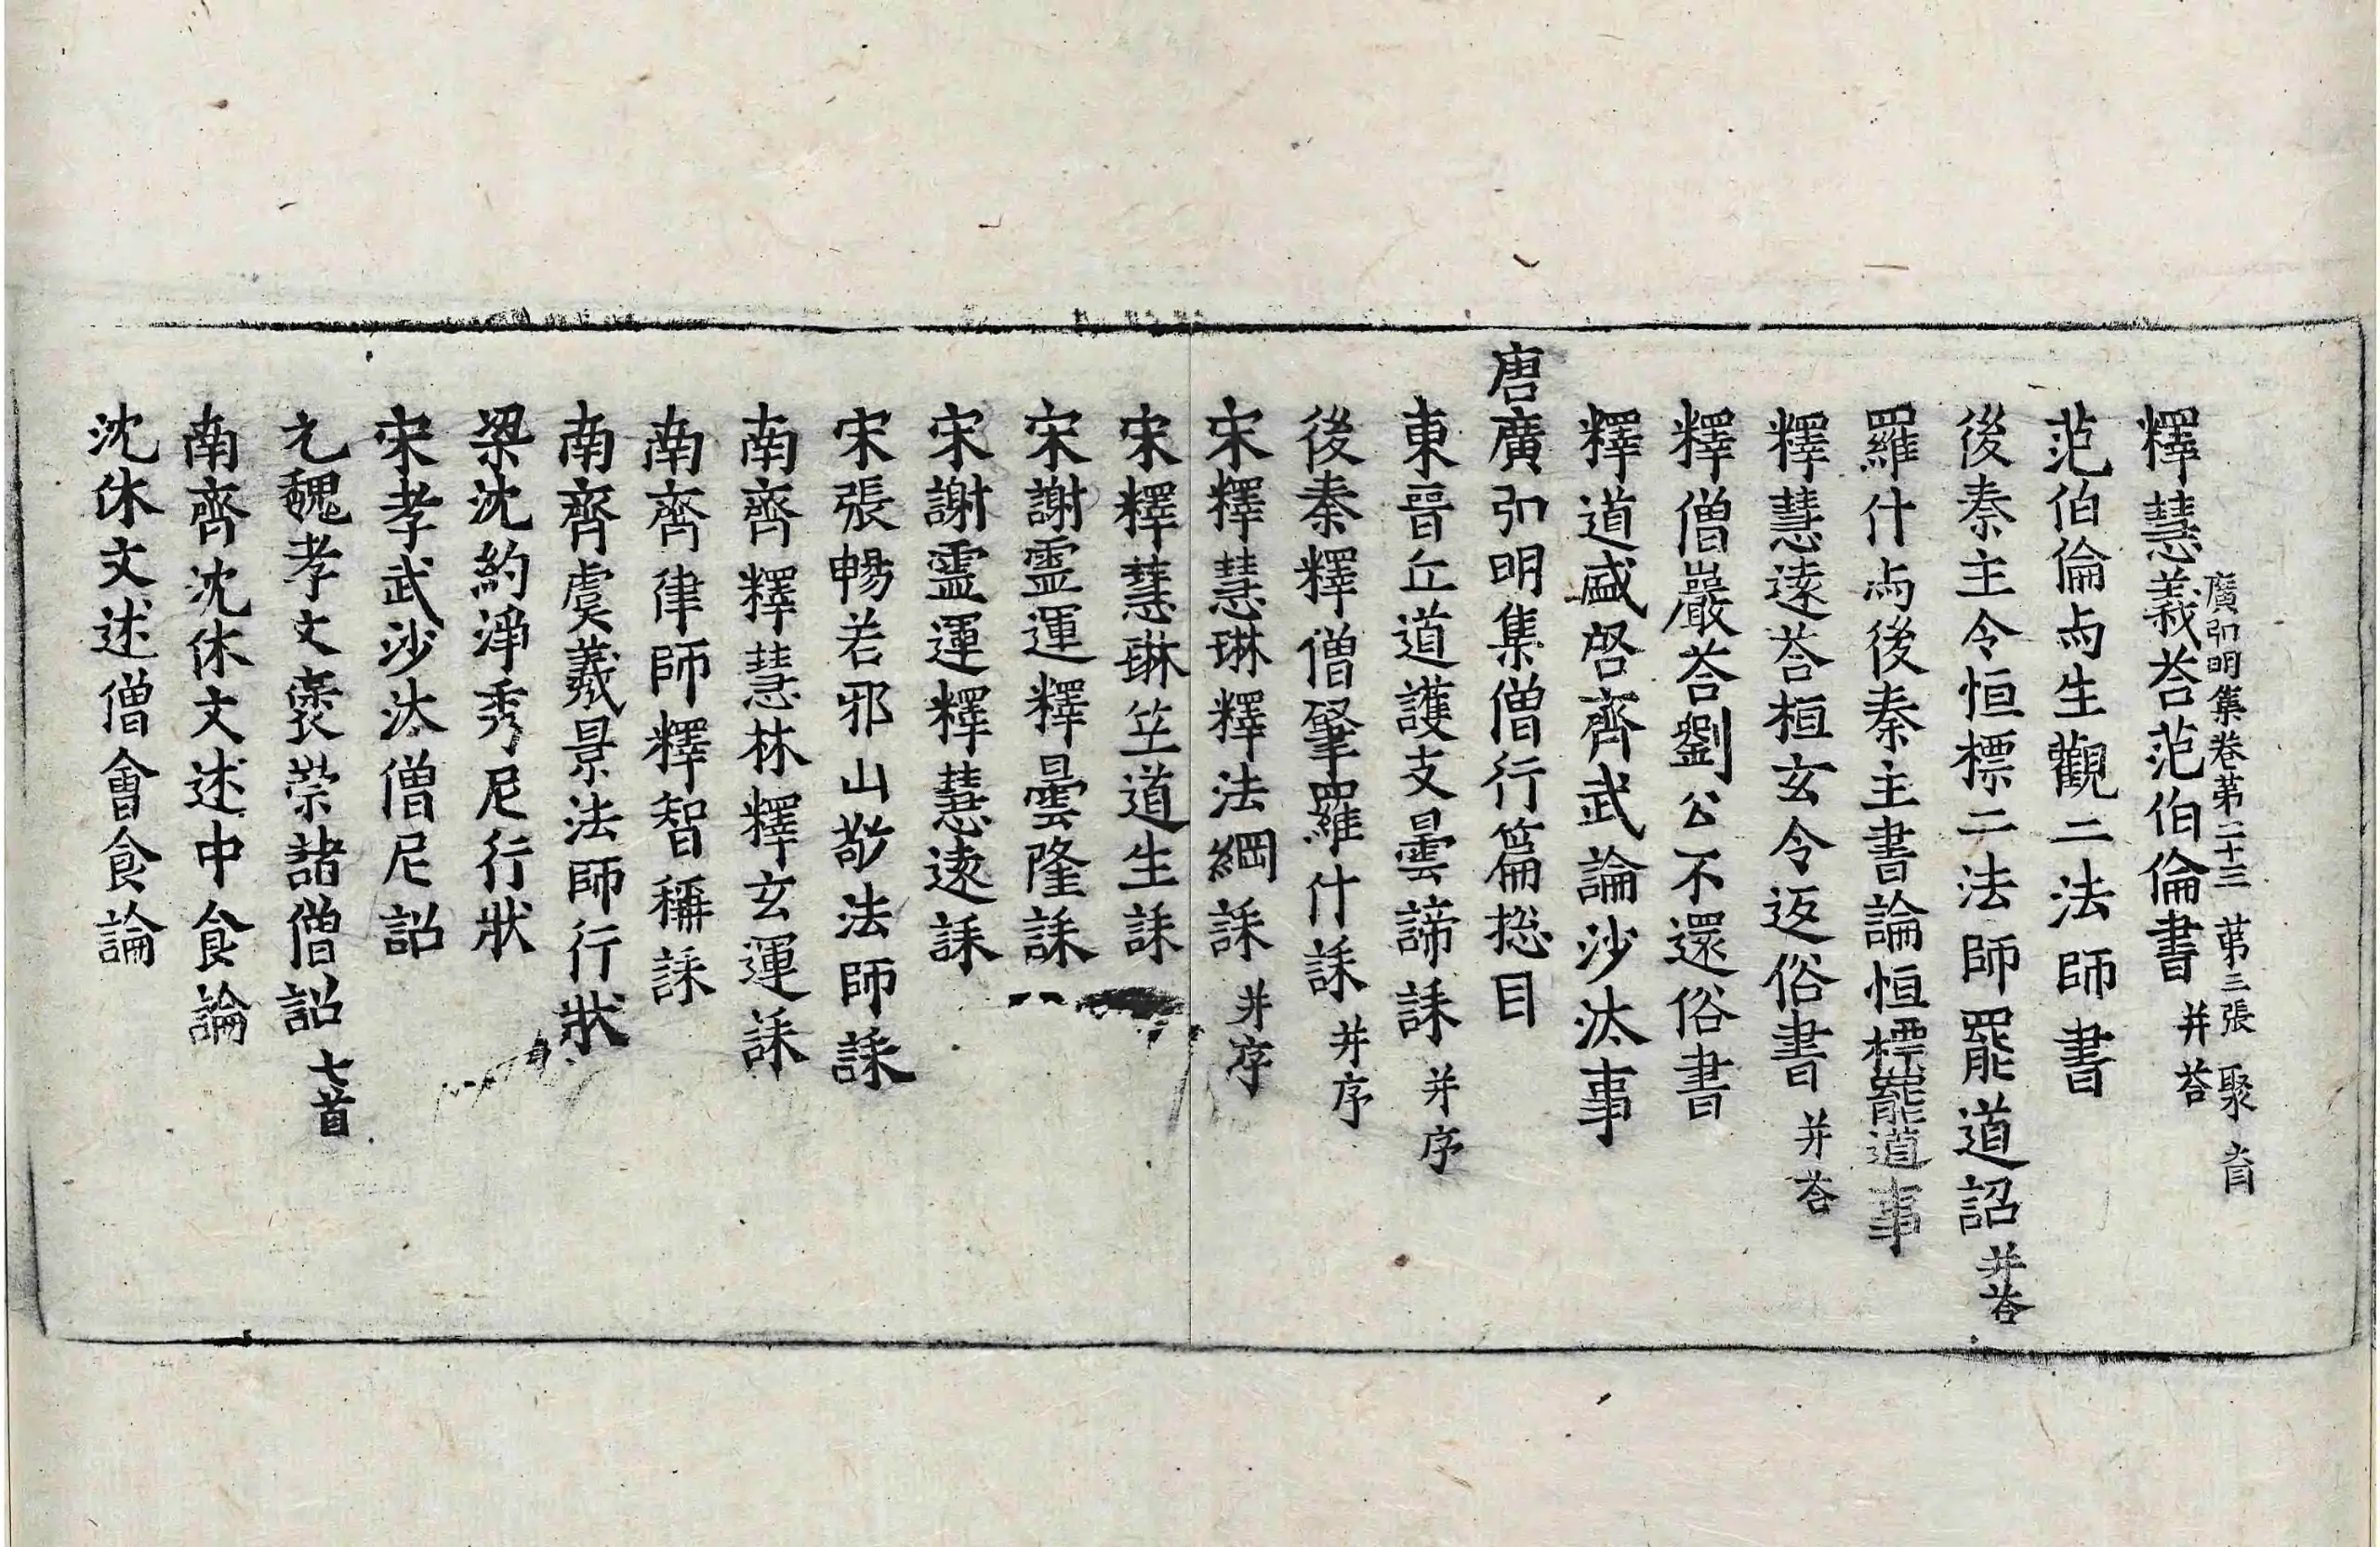 廣弘明集卷第二十三 第三張 聚
釋慧義荅范伯倫書 并荅
范伯倫與生觀二法師書
後秦主令恒標二法師罷道詔 并荅
羅什與後秦主書論恒標罷道事
釋慧遠荅桓玄令返俗書 并荅
釋僧巖荅劉公不還俗書
釋道盛啓齊武論沙汰事
唐廣弘明集僧行篇揔目
東晉丘道護支曇諦誄 并序
後秦釋僧肇羅什誄 并序
宋釋慧琳釋法綱誄 并序
宋釋慧琳竺道生誄
宋謝靈運釋曇隆誄
宋謝靈運釋慧遠誄
宋張暢若邪山敬法師誄
南齊釋慧林釋玄運誄
南齊律師釋智稱誄
南齊虞羲景法師行狀
梁沈約淨秀尼行狀
宋孝武沙汰僧尼詔
元魏孝文褒崇諸僧詔 七首
南齊沈休文述中食論
沈休文述僧會食論